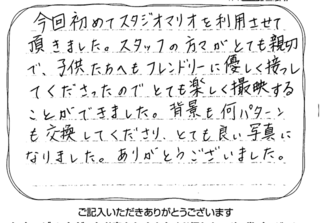 今回初めてスタジオマリオを利用させて
頂きました。スタッフの方々がとても親切
で、子供たちへもフレンドリーに優しく接っし
てくださったのでとても楽しく撮映する
ことができました。背景も何パターン
も交換してくださり、とても良い写真に
なりました。ありがとうございました。
ご記入いただきありがとうございます